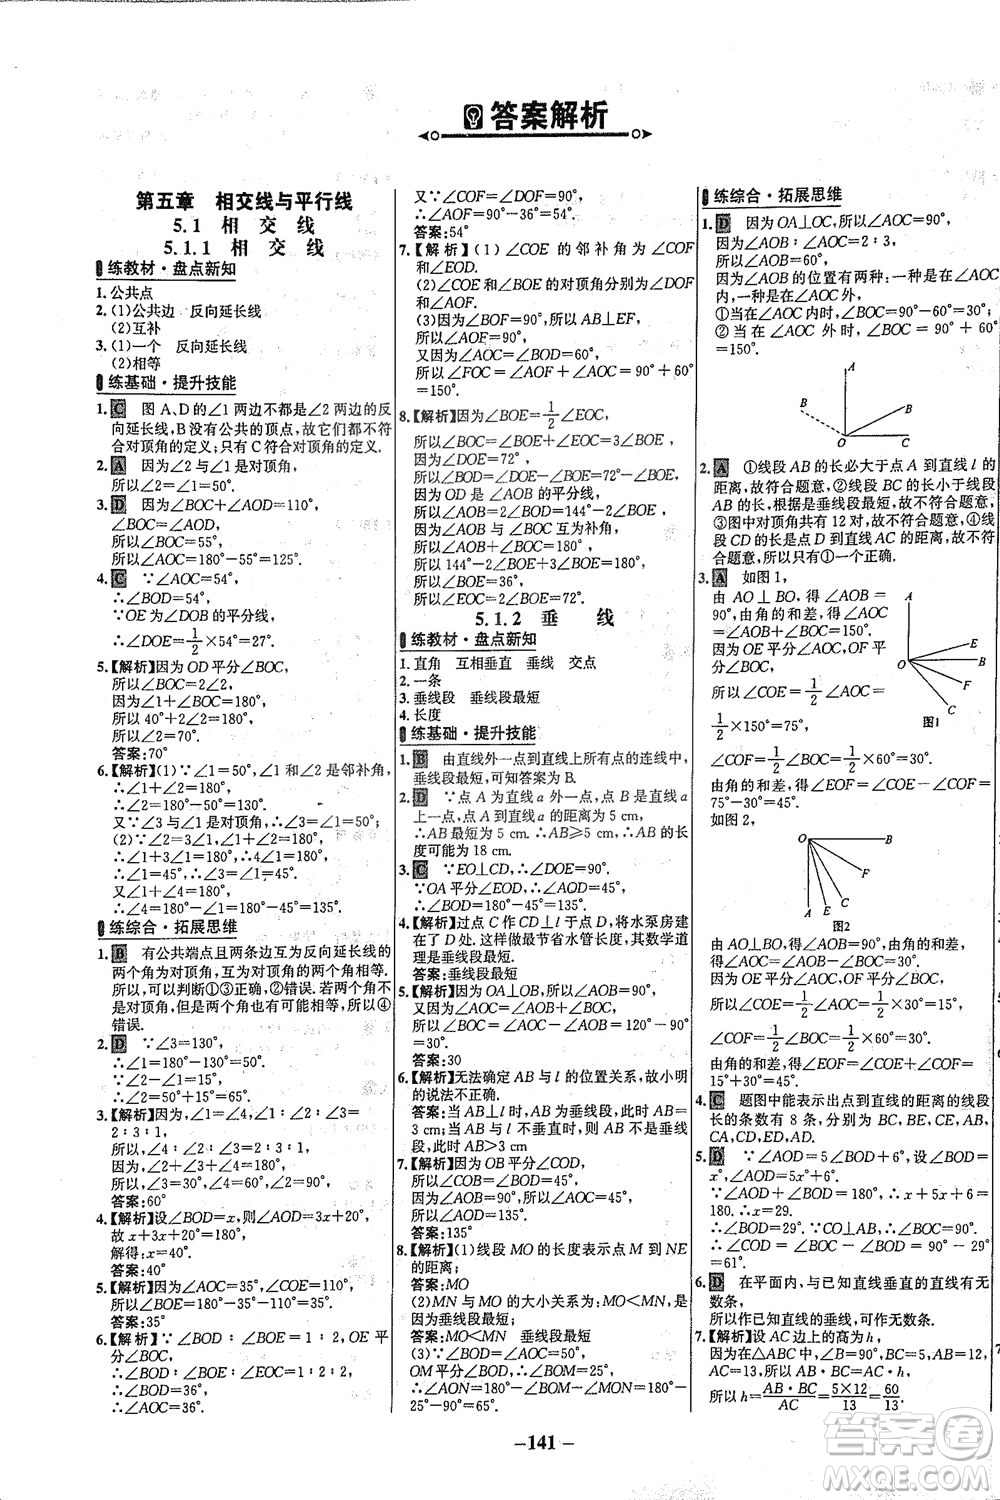 答案解析
第五章 相交线与平行线
5.1 相交线
5.1.1 相交线
练教材·盘点新知
1.公共点
2.(1)公共边 反向延长线
(2)互补
3.(1)一个 反向延长线
(2)相等
练基础·提升技能
1.C 图A、D的∠1两边不都是∠2两边的反
向延长线,B没有公共的顶点,故它们都不符
合对顶角的定义;只有C符合对顶角的定义.
2.A 因为∠2与∠1是对顶角,
所以∠2=∠1.
3.D 因为∠BOC+∠AOD=110°,
∠BOC=∠AOD,
所以∠BOC=55°,
所以∠AOC=180°-55°=125°.
4.C ∵∠AOC=54°,
∴∠BOD=54°,
∵OE为∠DOB的平分线,
∴∠DOE=1/2×54°=27°.
5.【解析】因为OD平分∠BOC,
所以∠BOC=2∠2,
因为∠1+∠BOC=180°,
所以40°+2∠2=180°,
所以∠2=70°.
答案:70°
6.【解析】(1)∵∠1=50°,∠1和∠2是邻补角,
∴∠1+∠2=180°,
∴∠2=180°-50°=130°.
又∵∠3与∠1是对顶角,∴∠3=∠1=50°;
(2)∵∠2=3∠1,∠1+∠2=180°,
∴∠1+3∠1=180°,∴4∠1=180°,
∴∠1=45°,∴∠3=∠1=45°.
又∠1+∠4=180°,
∴∠4=180°-∠1=180°-45°=135°.
练综合·拓展思维
1.D 有公共端点且两条边互为反向延长线的
两个角为对顶角,互为对顶角的两个角相等.
所以,可以判断①③正确,②错误.若两个角不
是对顶角,但是两个角也有可能相等,所以④
错误.
2.D ∵∠3=130°,
∴∠1=180°-130°=50°,
∴∠2=50°+15°=65°.
3.【解析】因为∠2+∠3=180°,∠2∶∠3=
2∶1,
所以∠4=∠2=120°,∠3=60°.
所以∠1=∠3=60°.
答案:60°
4.【解析】设∠BOD=x,则∠AOD=3x+20°,
故x+3x+20°=180°,
解得:x=40°.
答案:40°
5.【解析】因为∠AOC=35°,∠COE=110°,
所以∠BOE=180°-35°-110°=35°.
答案:35°
6.【解析】∵∠BOD∶∠BOE=1∶2,OE平
分∠BOC,
∴∠BOD∶∠BOE∶∠EOC=1∶2∶2,
∴∠BOD=36°,
∴∠AOC=36°,
又∵∠COF=∠DOF=90°,
∴∠AOF=90°-36°=54°.
答案:54°
7.【解析】(1)∠COE的邻补角为∠COF
和∠EOD.
(2)∠COE和∠BOE的对顶角分别为∠DOF
和∠AOF.
(3)因为∠BOF=90°,所以AB⊥EF,
所以∠AOF=90°,
又因为∠AOC=∠BOD=60°,
所以∠FOC=∠AOF+∠AOC=90°+60°
=150°.
8.【解析】因为∠BOE=1/2∠EOC,
所以∠BOC=∠BOE+∠EOC=3∠BOE,
因为∠DOE=72°,
所以∠BOD=∠DOE-∠BOE=72°-∠BOE,
因为OD是∠AOB的平分线,
所以∠AOB=2∠BOD=144°-2∠BOE,
因为∠AOB与∠BOC互为补角,
所以∠AOB+∠BOC=180°,
所以144°-2∠BOE+3∠BOE=180°,
所以∠BOE=36°,
所以∠EOC=2∠BOE=72°.
5.1.2 垂线
练教材·盘点新知
1.直角 互相垂直 垂线 交点
2.一条
3.垂线段 垂线段最短
4.长度
练基础·提升技能
1.D 由直线外一点到直线上所有点的连线中,
垂线段最短,可知答案为B.
2.D ∵点A为直线a外一点,点B是直线a
上一点,点A到直线a的距离为5 cm,
∴AB最短为5 cm.∴AB≥5 cm.∴AB的长
度可能为18 cm.
3.C ∵EO⊥CD,∴∠DOE=90°.
∵OA平分∠EOD,∴∠AOD=45°,
∴∠BOD=180°-45°=135°.
4.【解析】过点C作CD⊥l于点D,将水泵房建
在了D处.这样做最节省水管长度,其数学道
理是垂线段最短.
答案:垂线段最短
5.【解析】因为OA⊥OB,所以∠AOB=90°,
又因为∠AOC=120°,
所以∠BOC=∠AOC-∠AOB=120°-90°
=30°.
答案:30
6.【解析】无法确定AB与l的位置关系,故小明
的说法不正确.
答案:当AB⊥l时,AB为垂线段,所以AB=
3 cm;当AB与l不垂直时,AB不是垂线
段,此时AB>3 cm
7.【解析】因为OB平分∠COD,
所以∠BOC=45°.
又因为∠AOB=180°,
所以∠AOC=135°.
答案:135°
8.【解析】(1)线段MO的长度表示点M到NE
的距离;
答案:MO
(2)MN与MO的大小关系为:MO<MN,是
因为垂线段最短;
答案:MO<MN 垂线段最短
(3)∵∠BOD=∠AOC=50°,
OM平分∠BOD,∴∠BOM=25°,
∴∠AON=180°-∠BOM-∠MON=180°
-25°-90°=65°.
练综合·拓展思维
1.D 因为OA⊥OC,所以∠AOC=90°,
因为∠AOB∶∠AOC=2∶3,
所以∠AOB=60°,
因为∠AOB的位置有两种:一种是在∠AOC
内,一种是在∠AOC外,
①当在∠AOC内时,∠BOC=90°-60°=30°;
②当在∠AOC外时,∠BOC=90°+60°
=150°.
A
B
B
O
C
2.A ①线段AB的长必大于点A到直线l的
距离,故符合题意,②线段BC的长小于线段
AB的长,根据是垂线段最短,故不符合题意,
③图中对顶角共有12对,故不符合题意,④线
段CD的长是点D到直线AC的距离,故不符
合题意,所以只有①一个正确.
3.A 如图1,
由AO⊥BO,得∠AOB=
90°,由角的和差,得∠AOC
=∠AOB+∠BOC=150°.
因为OE平分∠AOC,
所以∠COE=1/2∠AOC=
1/2×150°=75°,
A
O
E
B
F
C
图1
∠COF=1/2∠BOC=1/2×60°=30°.
由角的和差,得∠EOF=∠COE-∠COF=
75°-30°=45°.
如图2,
O
B
F
A
E
C
图2
由AO⊥BO,得∠AOB=90°,由角的和差,得
∠AOC=∠AOB-∠BOC=90°-60°=30°,
因为OE平分∠AOC,OF平分∠BOC,
所以∠COE=1/2∠AOC=1/2×30°=15°,
∠COF=1/2∠BOC=1/2×60°=30°.
由角的和差,得∠EOF=∠COE+∠COF=
15°+30°=45°.
4.C 题图中能表示出点到直线的距离的线段
长的条数有8条,分别为BC,BE,CE,AB,
CA,CD,ED,AD.
5.D ∵∠AOD=5∠BOD+6°,设∠BOD=
x°,∠AOD=5x°+6°.
∵∠AOD+∠BOD=180°,∴x+5x+6=
180.∴x=29.
∴∠BOD=29°.∵CO⊥AB,∴∠BOC=90°.
∴∠COD=∠BOC-∠BOD=90°-29°
=61°.
6.D 在平面内,与已知直线垂直的直线有无
数条,
所以作已知直线的垂线,可作无数条.
7.【解析】设AC边上的高为h,
因为在△ABC中,∠B=90°,BC=5,AB=12,
AC=13,所以AB·BC=AC·h,
所以h=AB·BC/AC=5×12/13=60/13.
-141-
答案圈
MXQE.COM